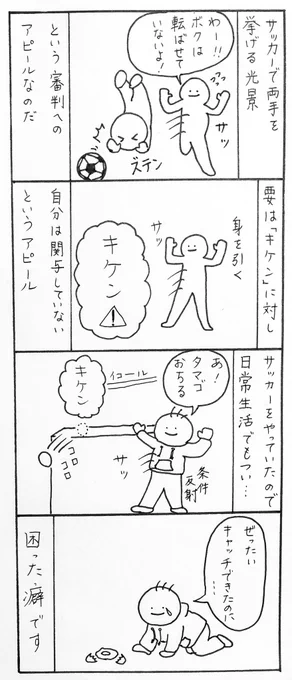 サッカーで両手を
挙げる光景
わー!!
ボクは
転ばせて
いないよ!
サッ
ズテン
という審判への
アピールなのだ
要は「キケン」に対し
身を引く
サッ
キケン
自分は関与していない
というアピール
サッカーをやっていたので
日常生活でもつい…
あ!
タマゴ
おちる
イコール
キケン
条件
反射
サッ
コロ
コロ
ぜったい
キャッチできたのに
……
困った癖です